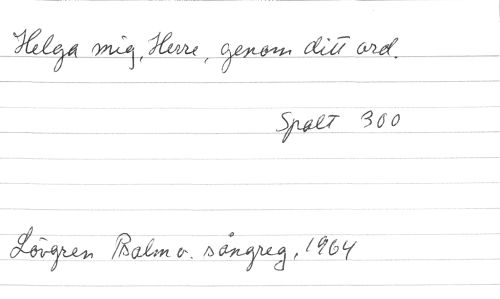 Helga mig, Herre, genom ditt ord.
Spalt 300
Lövgren Psalm o. sångreg, 1964